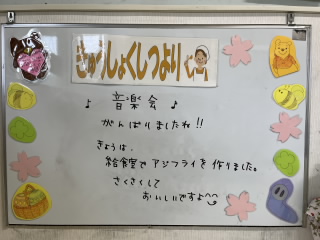 きゅうしょくしつより
♪ 音楽会 ♪
がんばりましたね!!
きょうは、
給食室でアジフライを作りました。
さくさくして
おいしいですよ^^